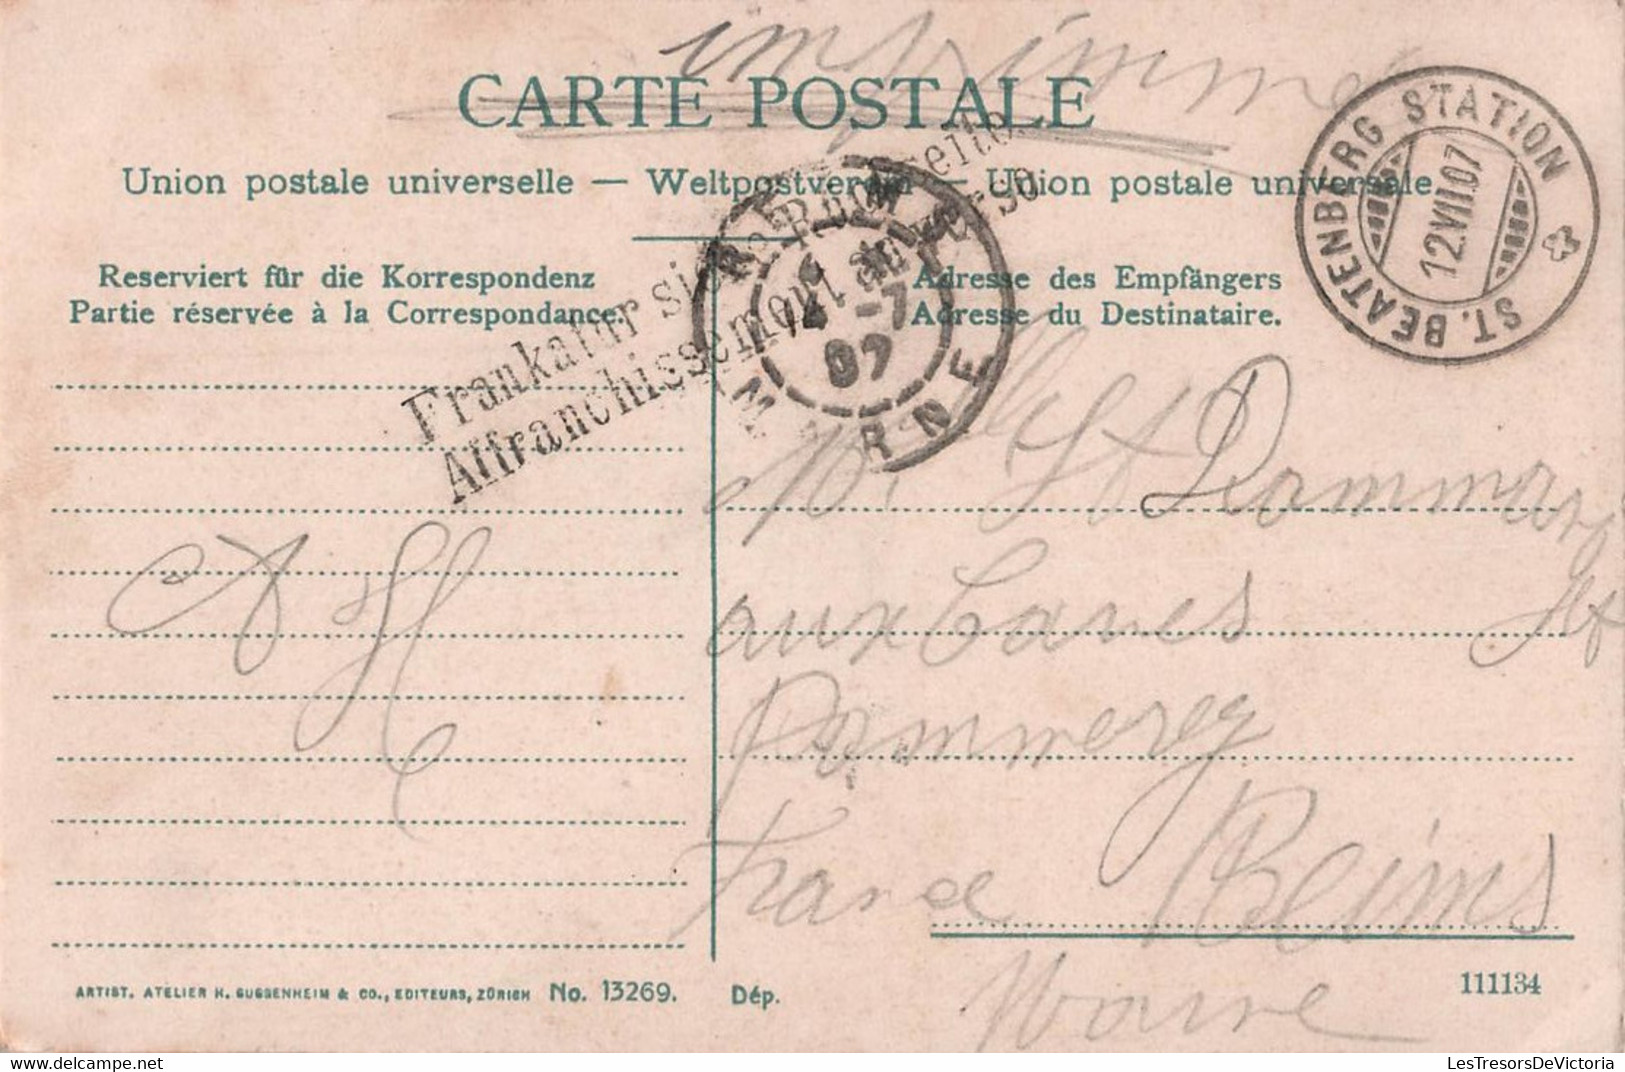 imprimé
CARTE POSTALE
Union postale universelle — Weltpostverein — Unione postale universale
ST. BEATENBERG STATION
12.VII.07
Frankatur siehe Rückseite.
Affranchissement au verso
REIMS
14 -7
07
MARNE
Reserviert für die Korrespondenz
Partie réservée à la Correspondance.
Adresse des Empfängers
Adresse du Destinataire.
Melle
aux Caves
Pommery
France Reims
Marne
ARTIST. ATELIER H. GUGGENHEIM & CO., EDITEURS, ZÜRICH No. 13269.
Dép.
111134
LesTresorsDeVictoria